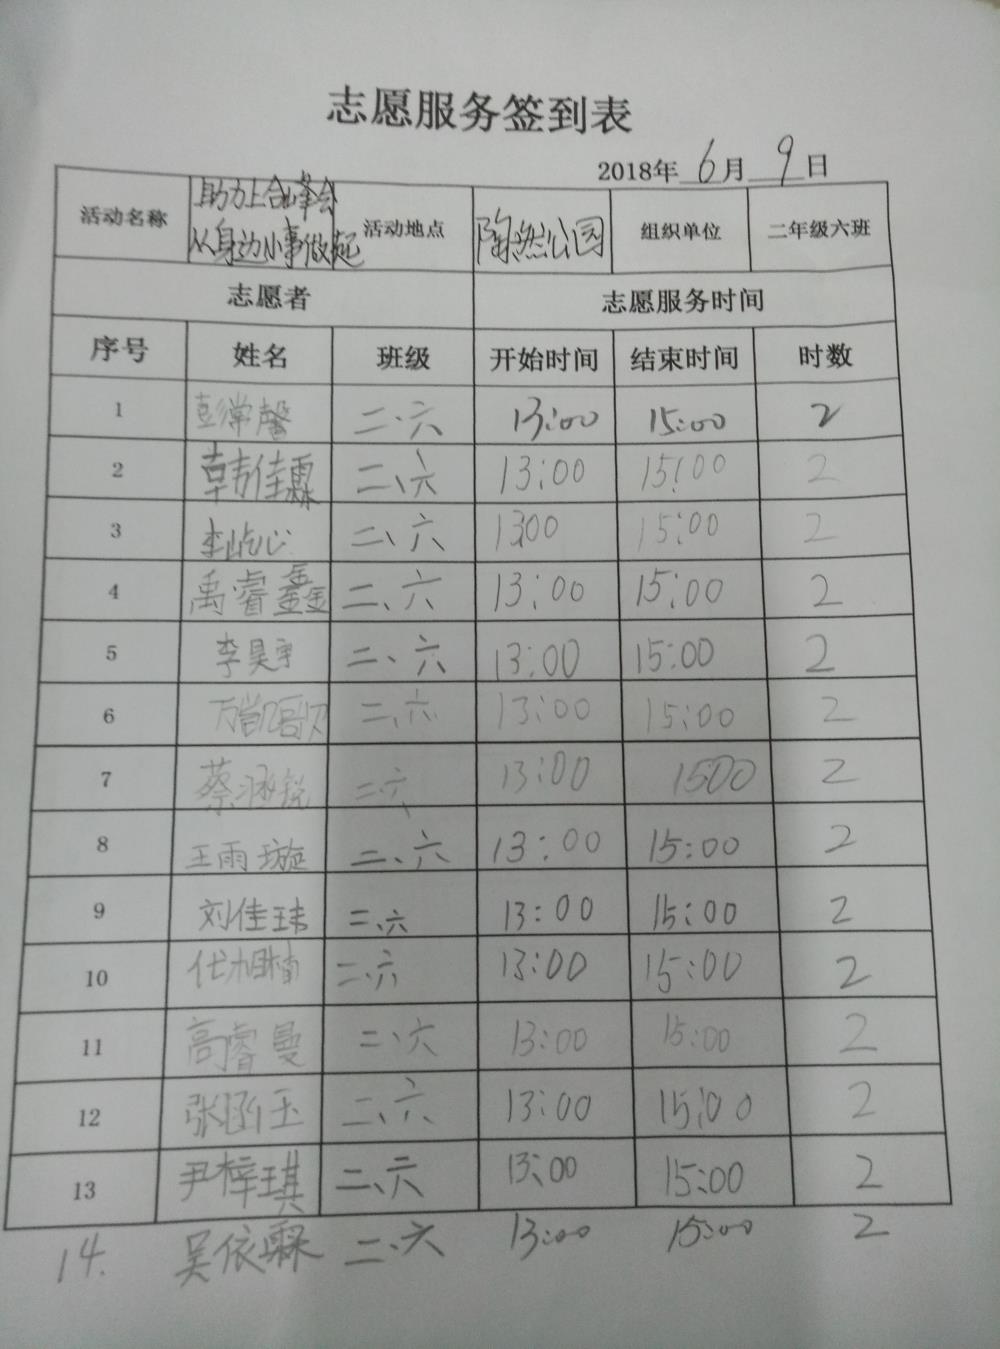 志愿服务签到表
2018年 6 月 9 日
活动名称 助力上合峰会 从身边小事做起 活动地点 陶然公园 组织单位 二年级六班
志愿者 志愿服务时间
序号 姓名 班级 开始时间 结束时间 时数
1 彭常馨 二、六 13:00 15:00 2
2 韩佳霖 二、六 13:00 15:00 2
3 李屹心 二、六 13:00 15:00 2
4 禹睿鑫 二、六 13:00 15:00 2
5 李昊宇 二、六 13:00 15:00 2
6 万凯歌 二、六 13:00 15:00 2
7 蔡涵锐 二六 13:00 1500 2
8 王雨璇 二、六 13:00 15:00 2
9 刘佳玮 二、六 13:00 15:00 2
10 代旭楠 二、六 13:00 15:00 2
11 高睿曼 二、六 13:00 15:00 2
12 张函玉 二、六 13:00 15:00 2
13 尹梓琪 二、六 13:00 15:00 2
14. 吴依霖 二、六 13:00 15:00 2